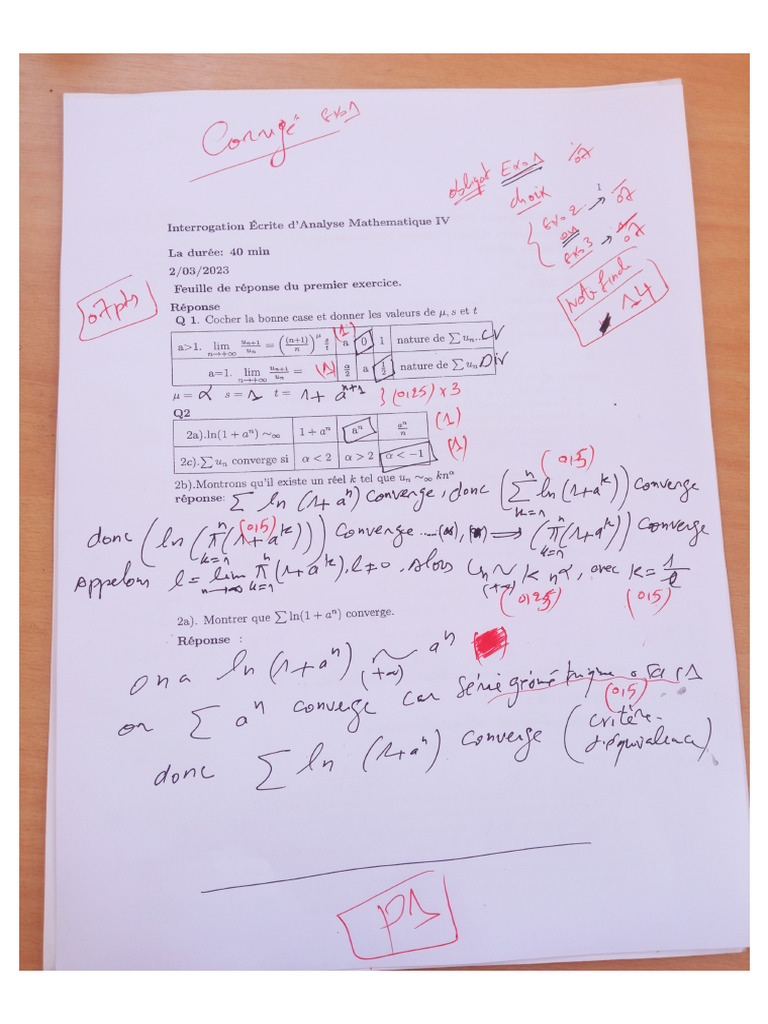 Corrigé Exo1
obligat Exo1 /07
choix
Exo2 → /07
ou
Exo3 → /07
Note finale
14
07pts
Interrogation Écrite d'Analyse Mathematique IV
La durée: 40 min
2/03/2023
Feuille de réponse du premier exercice.
Réponse
Q 1. Cocher la bonne case et donner les valeurs de μ, s et t
a>1. lim n→+∞ u_{n+1}/u_n = ((n+1)/n)^μ s/t (1) a 0 1 nature de ∑ u_n.. CV
a=1. lim n→+∞ u_{n+1}/u_n = (1) α/2 a 1/2 nature de ∑ u_n Div
μ = α s = 1 t = 1 + a^{n+1} } (0,25) × 3
Q2
2a).ln(1 + a^n) ∼_∞ 1 + a^n a^n a^n/n (1)
2c).∑ u_n converge si α < 2 α > 2 α < −1 (1)
2b).Montrons qu'il existe un réel k tel que u_n ∼_∞ kn^α (0,5)
réponse: ∑ ln (1+a^n) converge, donc (∑_{k=1}^n ln(1+a^k)) converge
donc (ln(π_{k=1}^n (1+a^k))) (0,5) converge ⟹ (π_{k=1}^n (1+a^k)) converge
Appelons l = lim_{n→∞} π_{k=1}^n (1+a^k), l≠0. Alors U_n ∼_{(+∞)} k n^α, avec k = 1/l
(0,25) (0,5)
2a). Montrer que ∑ ln(1 + a^n) converge.
Réponse :
on a ln (1+a^n) ∼_{(+∞)} a^n
or ∑ a^n converge car série géométrique
(0,5)
donc ∑ ln (1+a^n) converge (critère d'équivalence)
P1